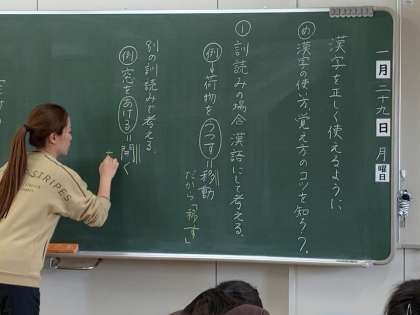 一月二十九日月曜日
漢字を正しく使えるように
め 漢字の使い方、覚え方のコツを知ろう。
① 訓読みの場合 漢語にして考える。
例→荷物をうつす=移動
だから「移す」
別の訓読みを考える。
例 窓をあける=開く
STRIPES